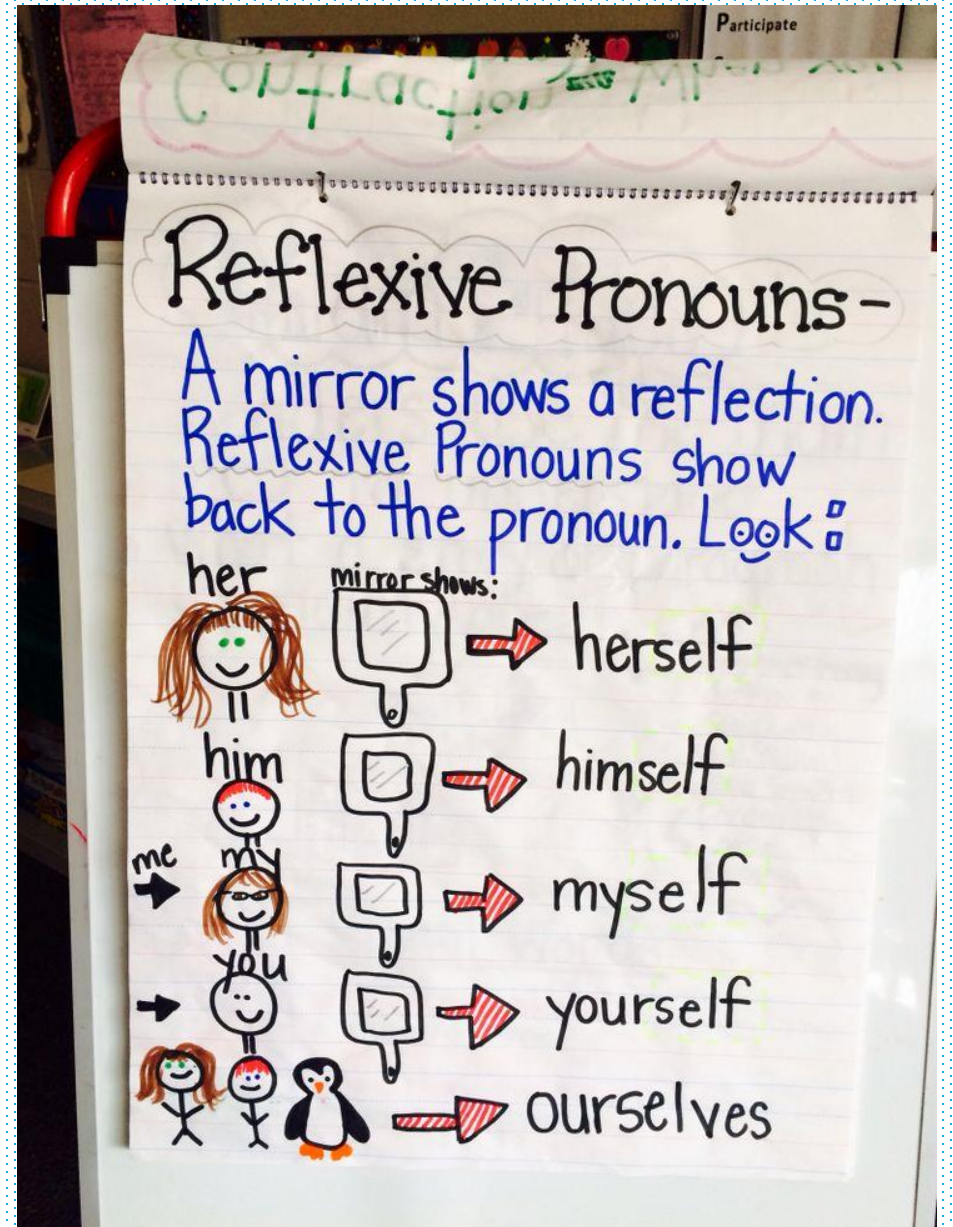 Participate
Contraction - When you
Reflexive Pronouns-
A mirror shows a reflection.
Reflexive Pronouns show
back to the pronoun. Look:
her
mirror shows:
herself
him
himself
me
my
myself
you
yourself
ourselves